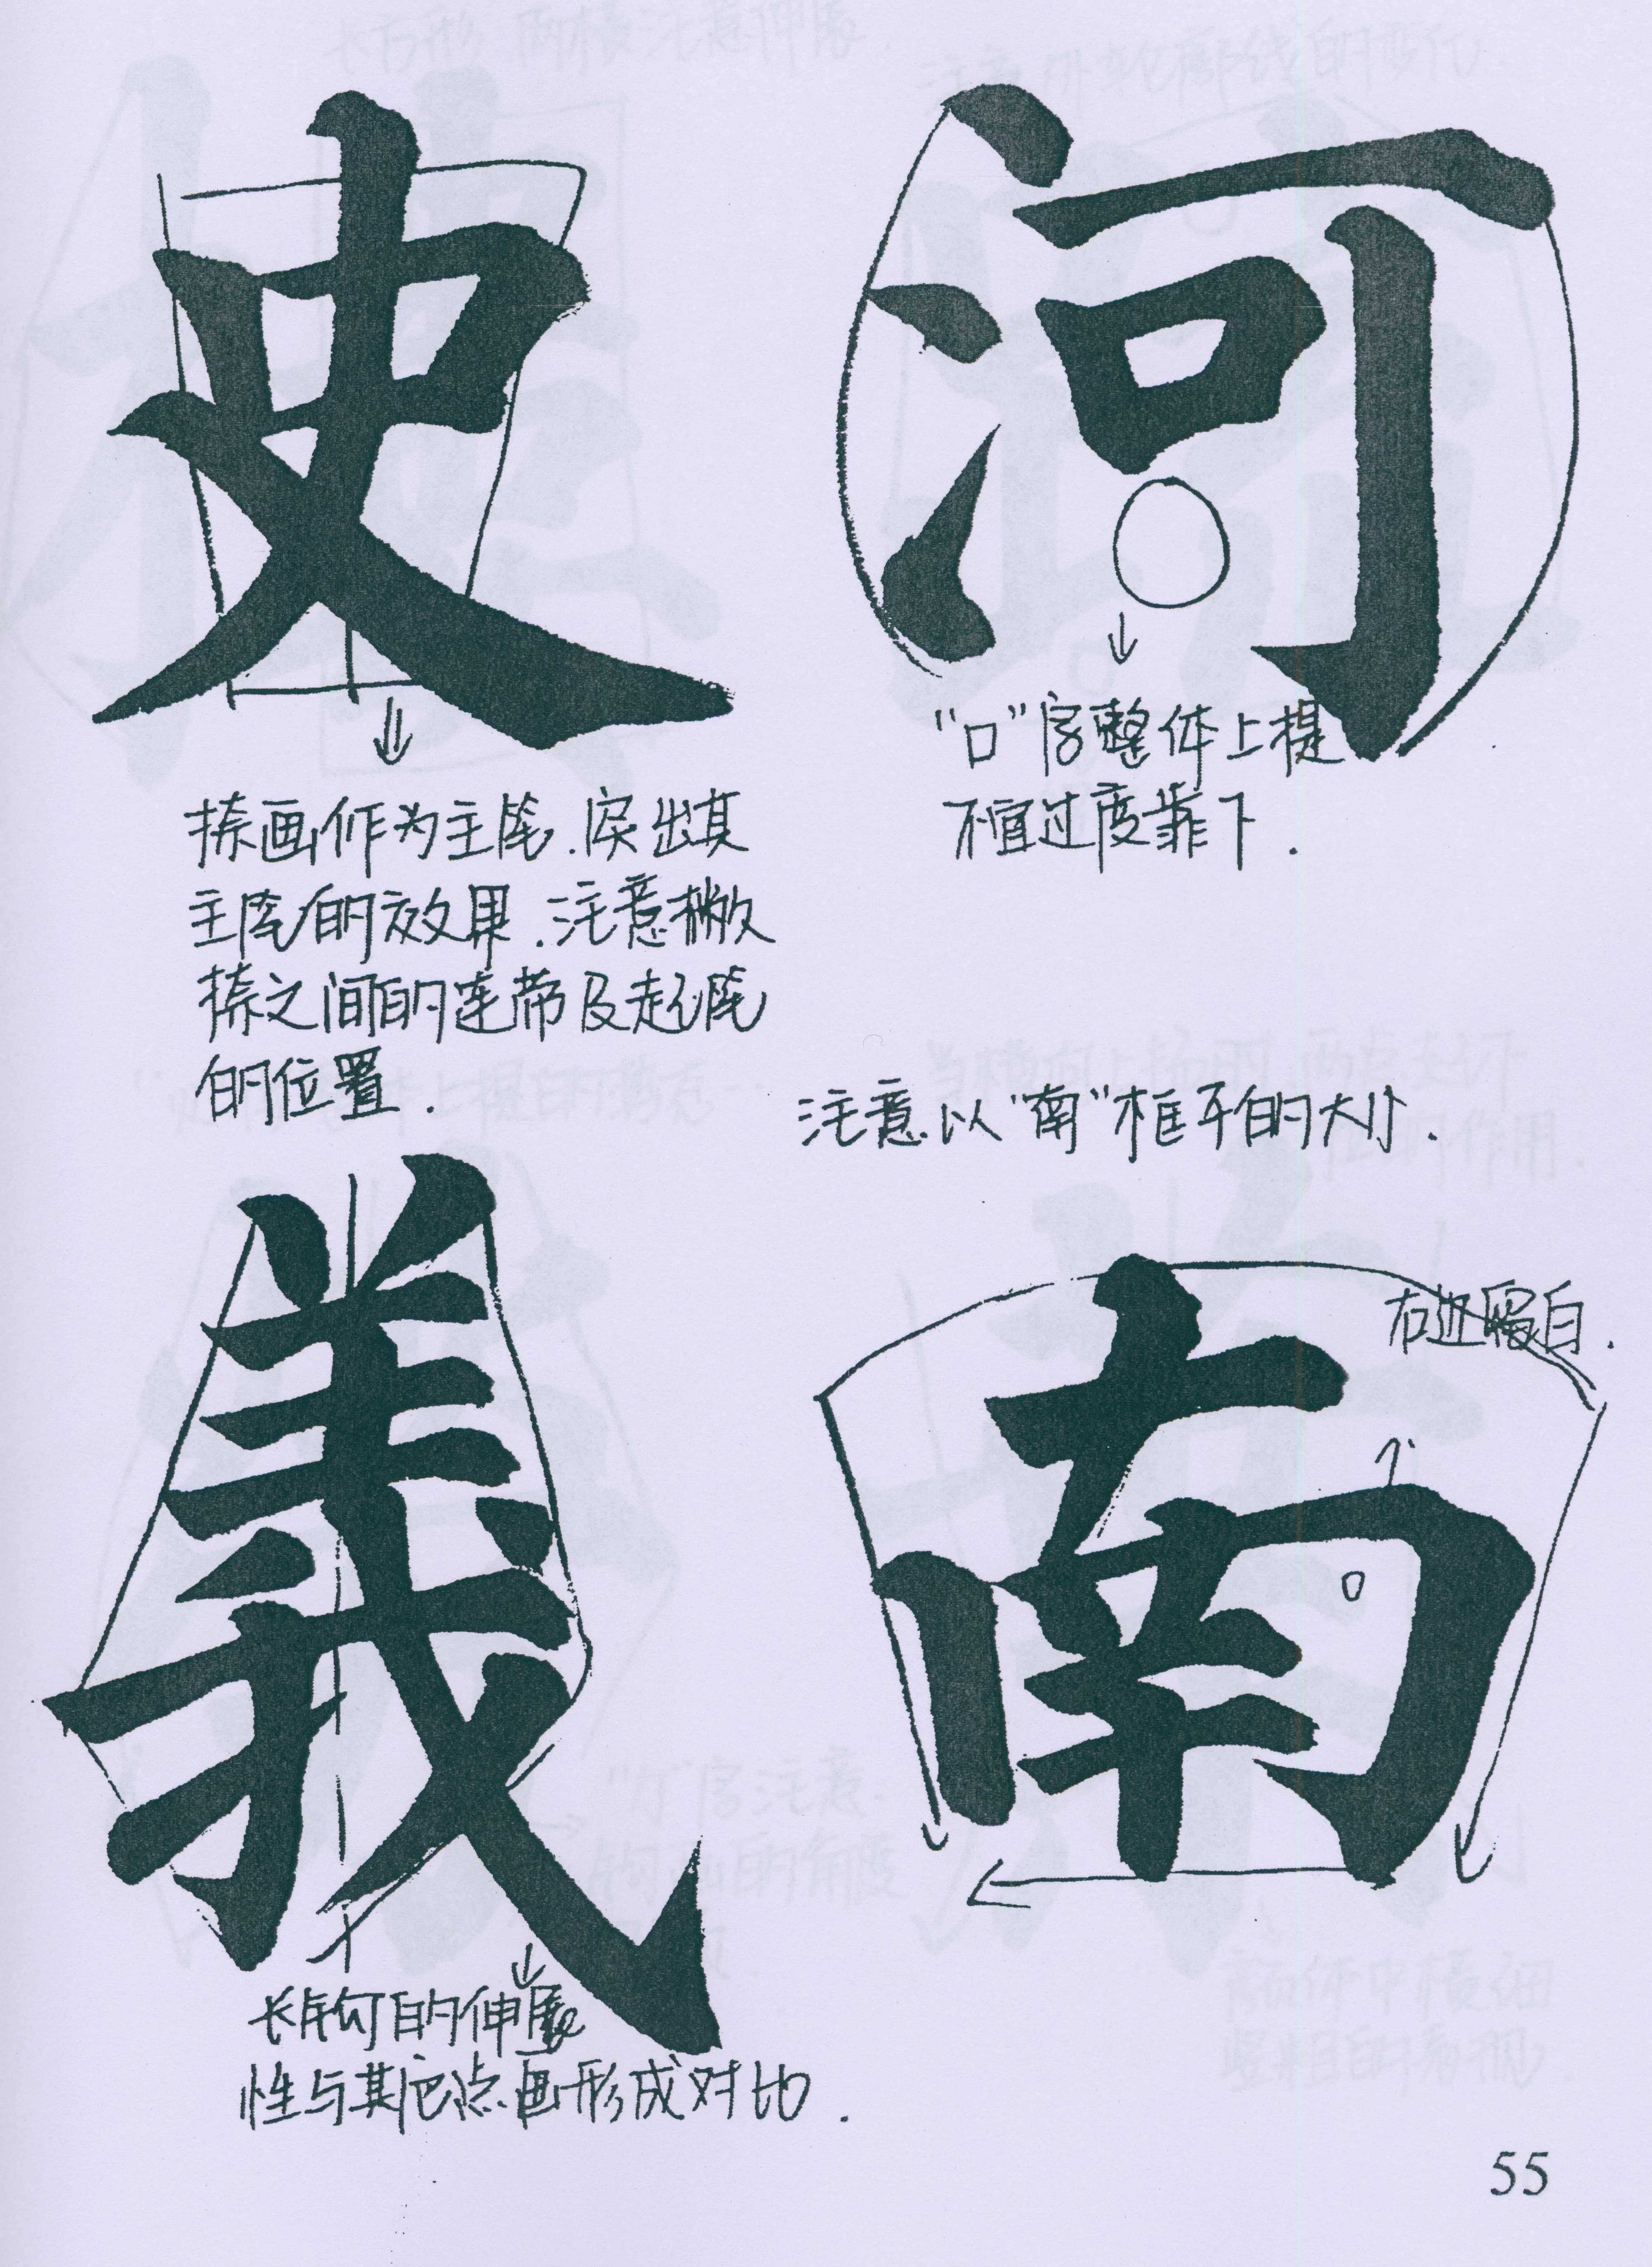 史
河
捺画作为主笔.突出其
主笔的效果.注意撇
捺之间的连带及起笔
的位置.
“口”字整体上提
不宜过度靠下.
義
南
注意以“南”框子的大小.
右边留白.
长斜勾的伸展
性与其它点画形成对比.
55